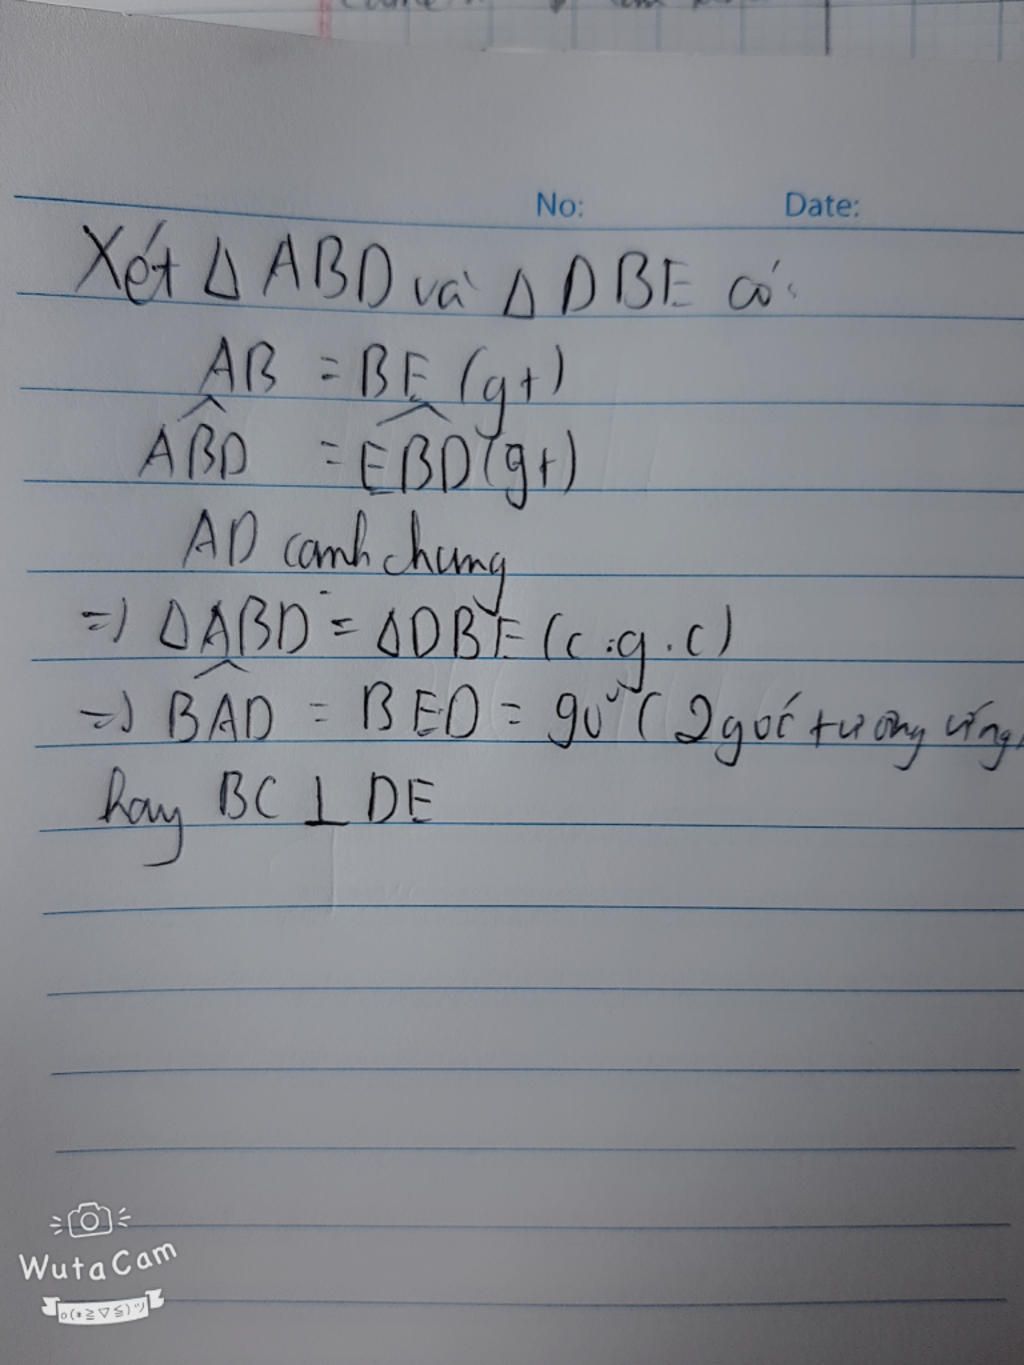 No: Date:
Xét Δ ABD và Δ DBE có:
AB = BE (gt)
ABD = EBD (gt)
AD cạnh chung
=) Δ ABD = Δ DBE (c.g.c)
=) BAD = BED = 90° ( 2 góc tương ứng
hay BC ⊥ DE
WutaCam
o(*≧▽≦)ツ